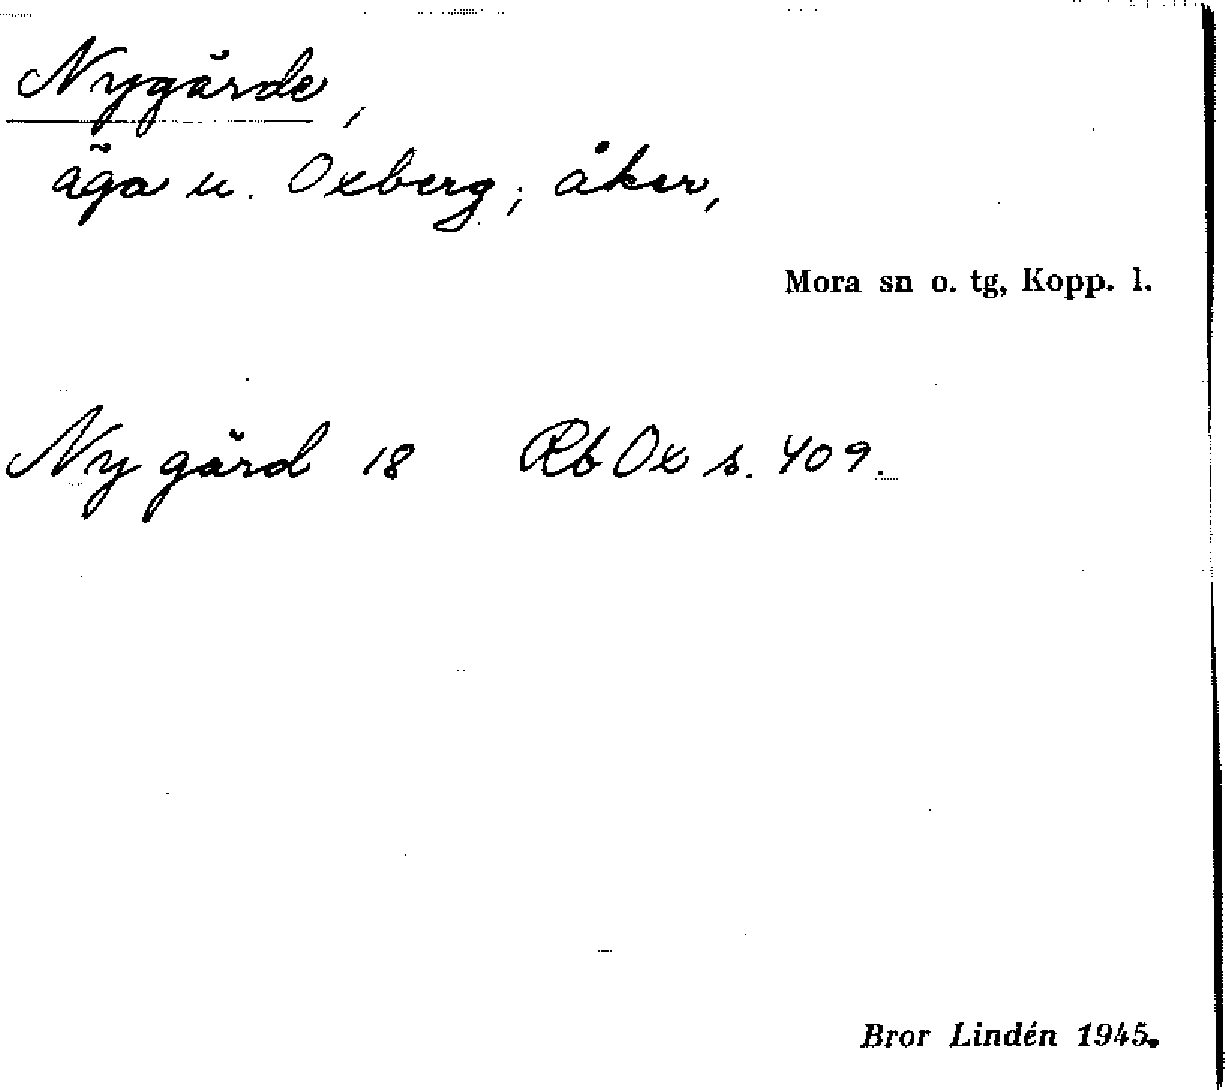 Nygärde,
äga u. Oxberg; åker,
Mora sn o. tg, Kopp. l.
Ny gärd 18 Rb Ox s. 409.
Bror Lindén 1945.